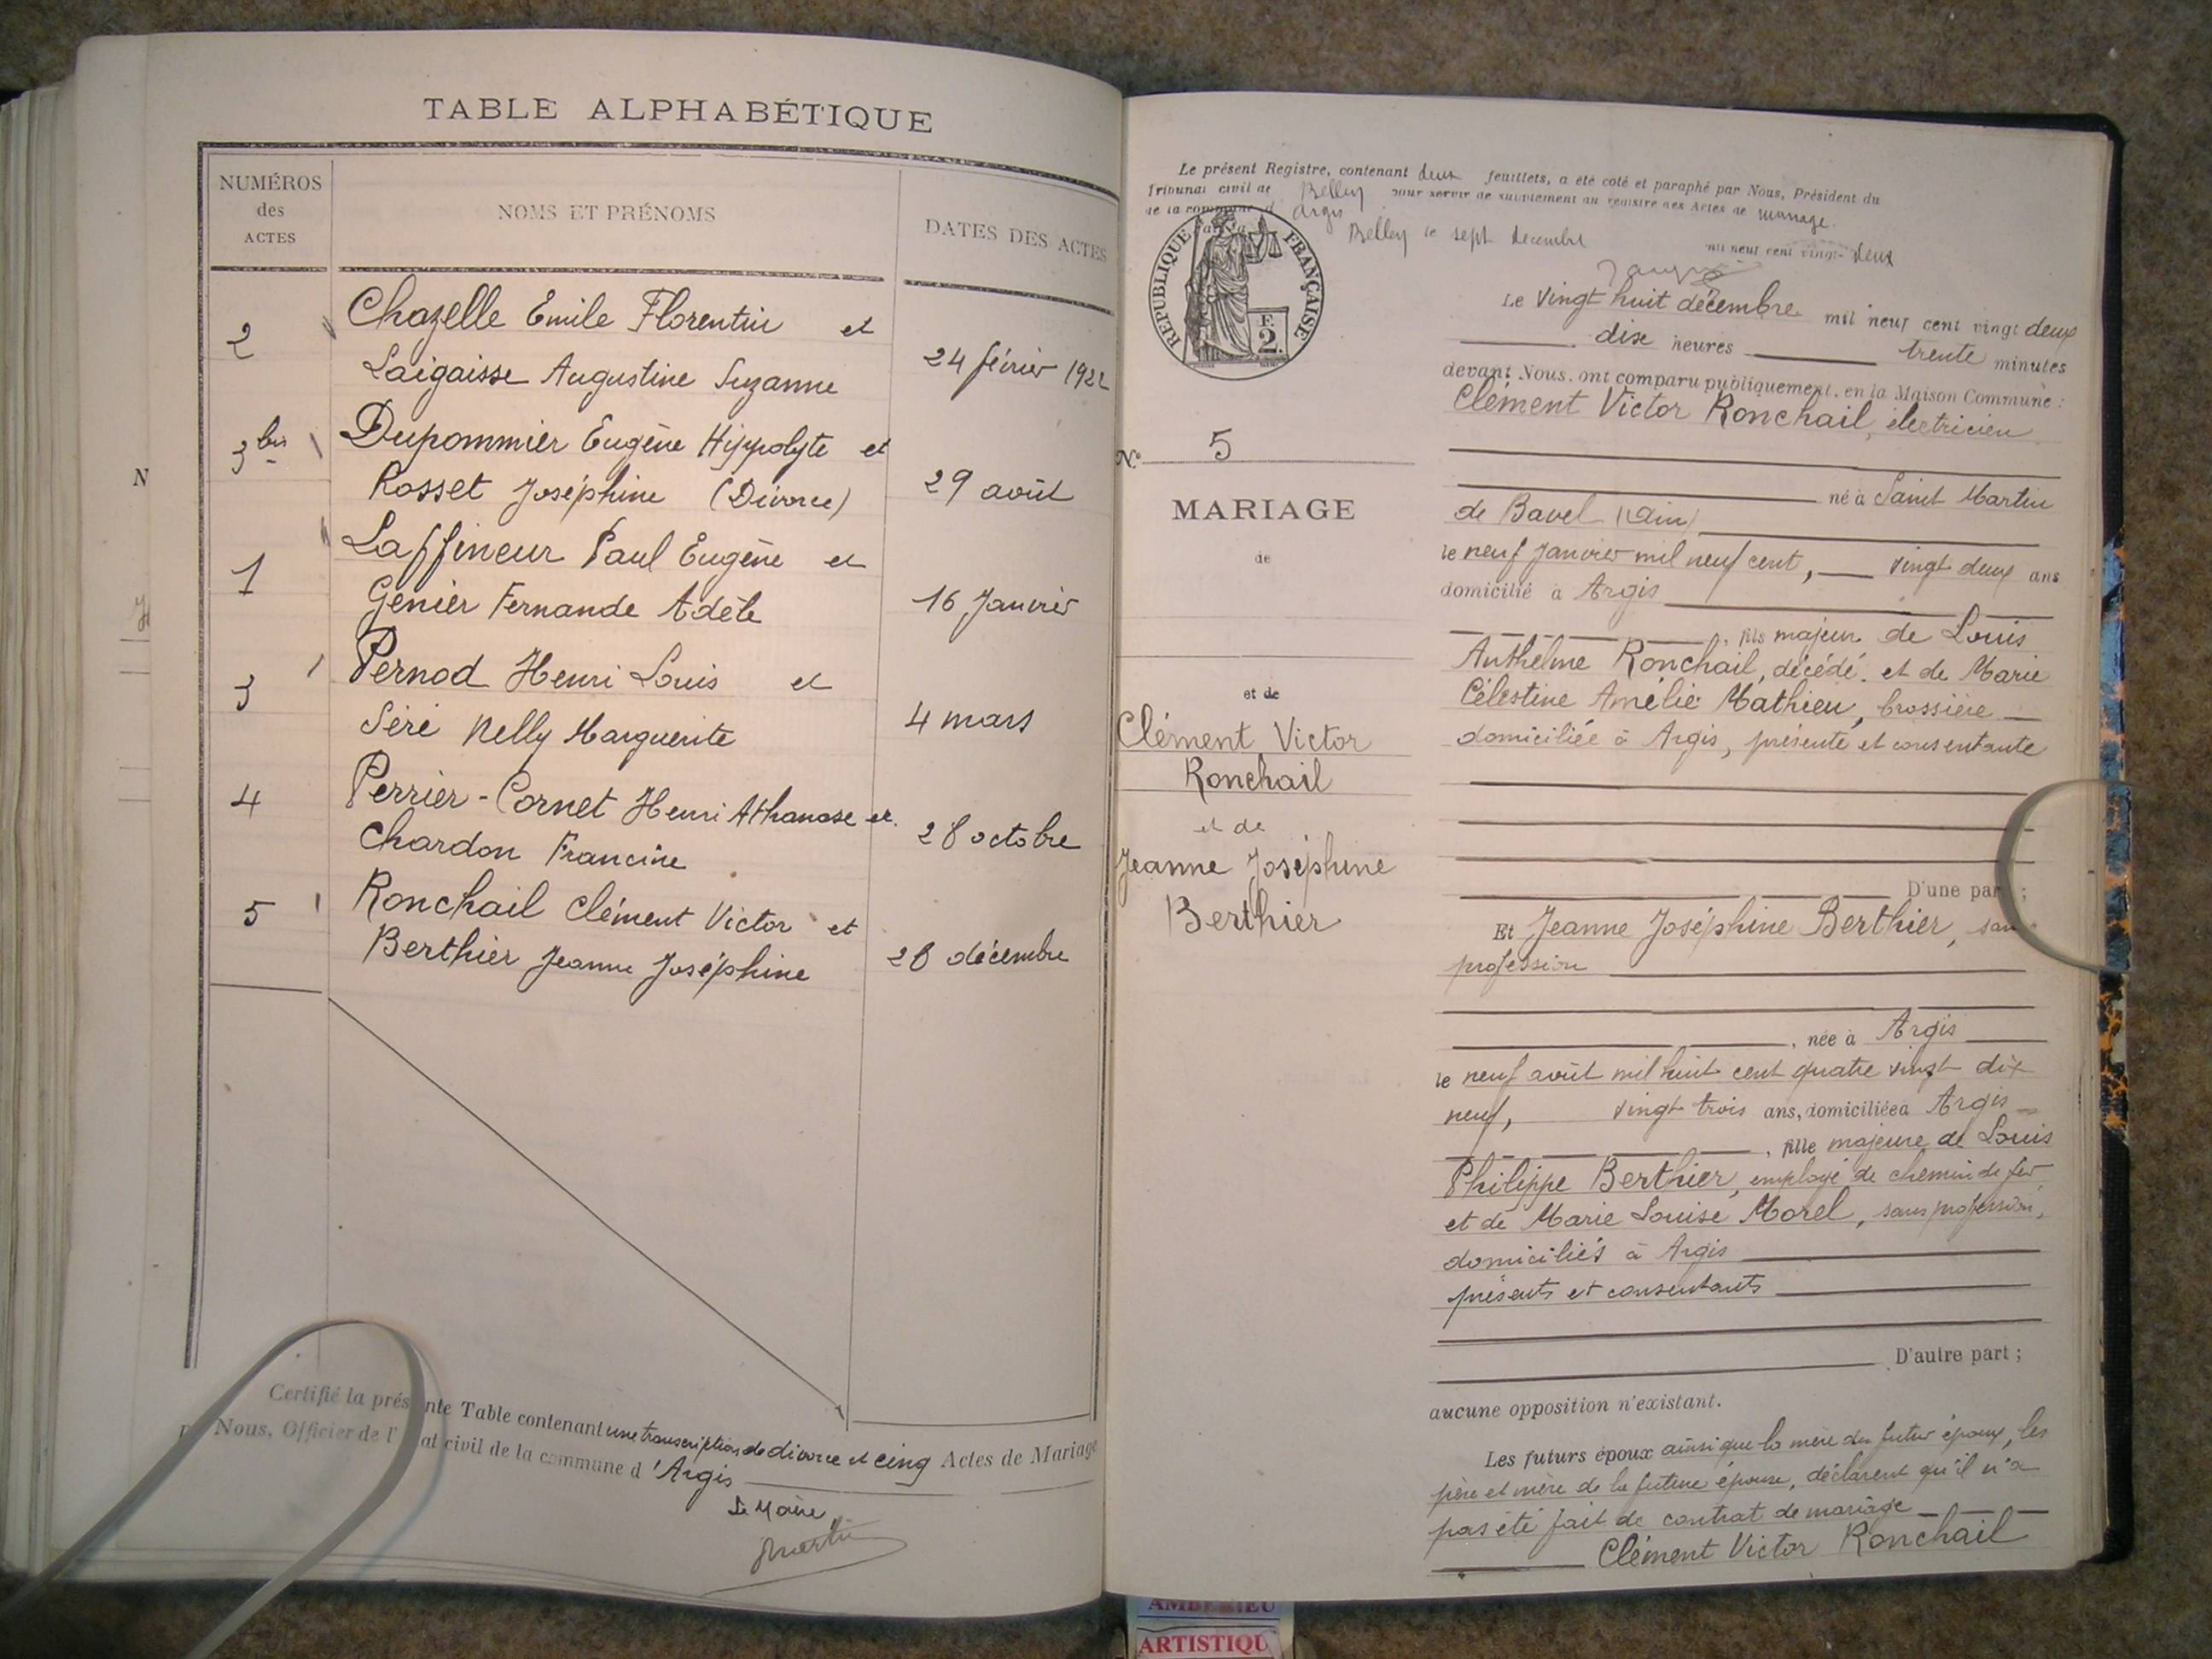 TABLE ALPHABÉTIQUE
NUMÉROS
des
ACTES
NOMS ET PRÉNOMS
DATES DES ACTES
2
Chazelle Emile Florentin et
Laigaisse Augustine Suzanne
24 février 1922
3 bis
Dupommier Eugène Hippolyte et
Rosset Joséphine (Divorce)
29 août
1
Laffineur Paul Eugène et
Genier Fernande Adèle
16 Janvier
3
Pernod Henri Louis et
Séré Nelly Marguerite
4 mars
4
Perrier-Cornet Henri Athanase et
Chardon Francine
28 octobre
5
Ronchail Clément Victor et
Berthier Jeanne Joséphine
28 décembre
Certifié la présente Table contenant une transcription de divorce et cinq Actes de Mariage
Nous, Officier de l'état civil de la commune d'Argis
Le Maire,
Martin
N
Le présent Registre, contenant deux feuillets, a été coté et paraphé par Nous, Président du
Tribunal civil de Belley pour servir de supplément au registre des Actes de mariage
de la commune d Argis
Belley le sept décembre mil neuf cent vingt-deux
RÉPUBLIQUE FRANÇAISE
F.
2.
Le vingt huit décembre mil neuf cent vingt deux
dix heures trente minutes
devant Nous, ont comparu publiquement, en la Maison Commune :
Clément Victor Ronchail, électricien
né à Saint Martin
de Bavel (Ain)
le neuf Janvier mil neuf cent, vingt deux ans
domicilié à Argis
, fils majeur de Louis
Anthelme Ronchail, décédé. et de Marie
Célestine Amélie Mathieu, brossière
domiciliée à Argis, présente et consentante
D'une part ;
N° 5
MARIAGE
de
et de
Clément Victor
Ronchail
et de
Jeanne Joséphine
Berthier
Et Jeanne Joséphine Berthier, sans
profession
, née à Argis
le neuf août mil huit cent quatre vingt dix
neuf, vingt trois ans, domiciliée à Argis
, fille majeure de Louis
Philippe Berthier, employé de chemin de fer
et de Marie Louise Morel, sans profession,
domiciliés à Argis
présents et consentants
D'autre part ;
aucune opposition n'existant.
Les futurs époux ainsi que la mère du futur époux, les
père et mère de la future épouse, déclarent qu'il n'a
pas été fait de contrat de mariage
Clément Victor Ronchail
ARTISTIQU